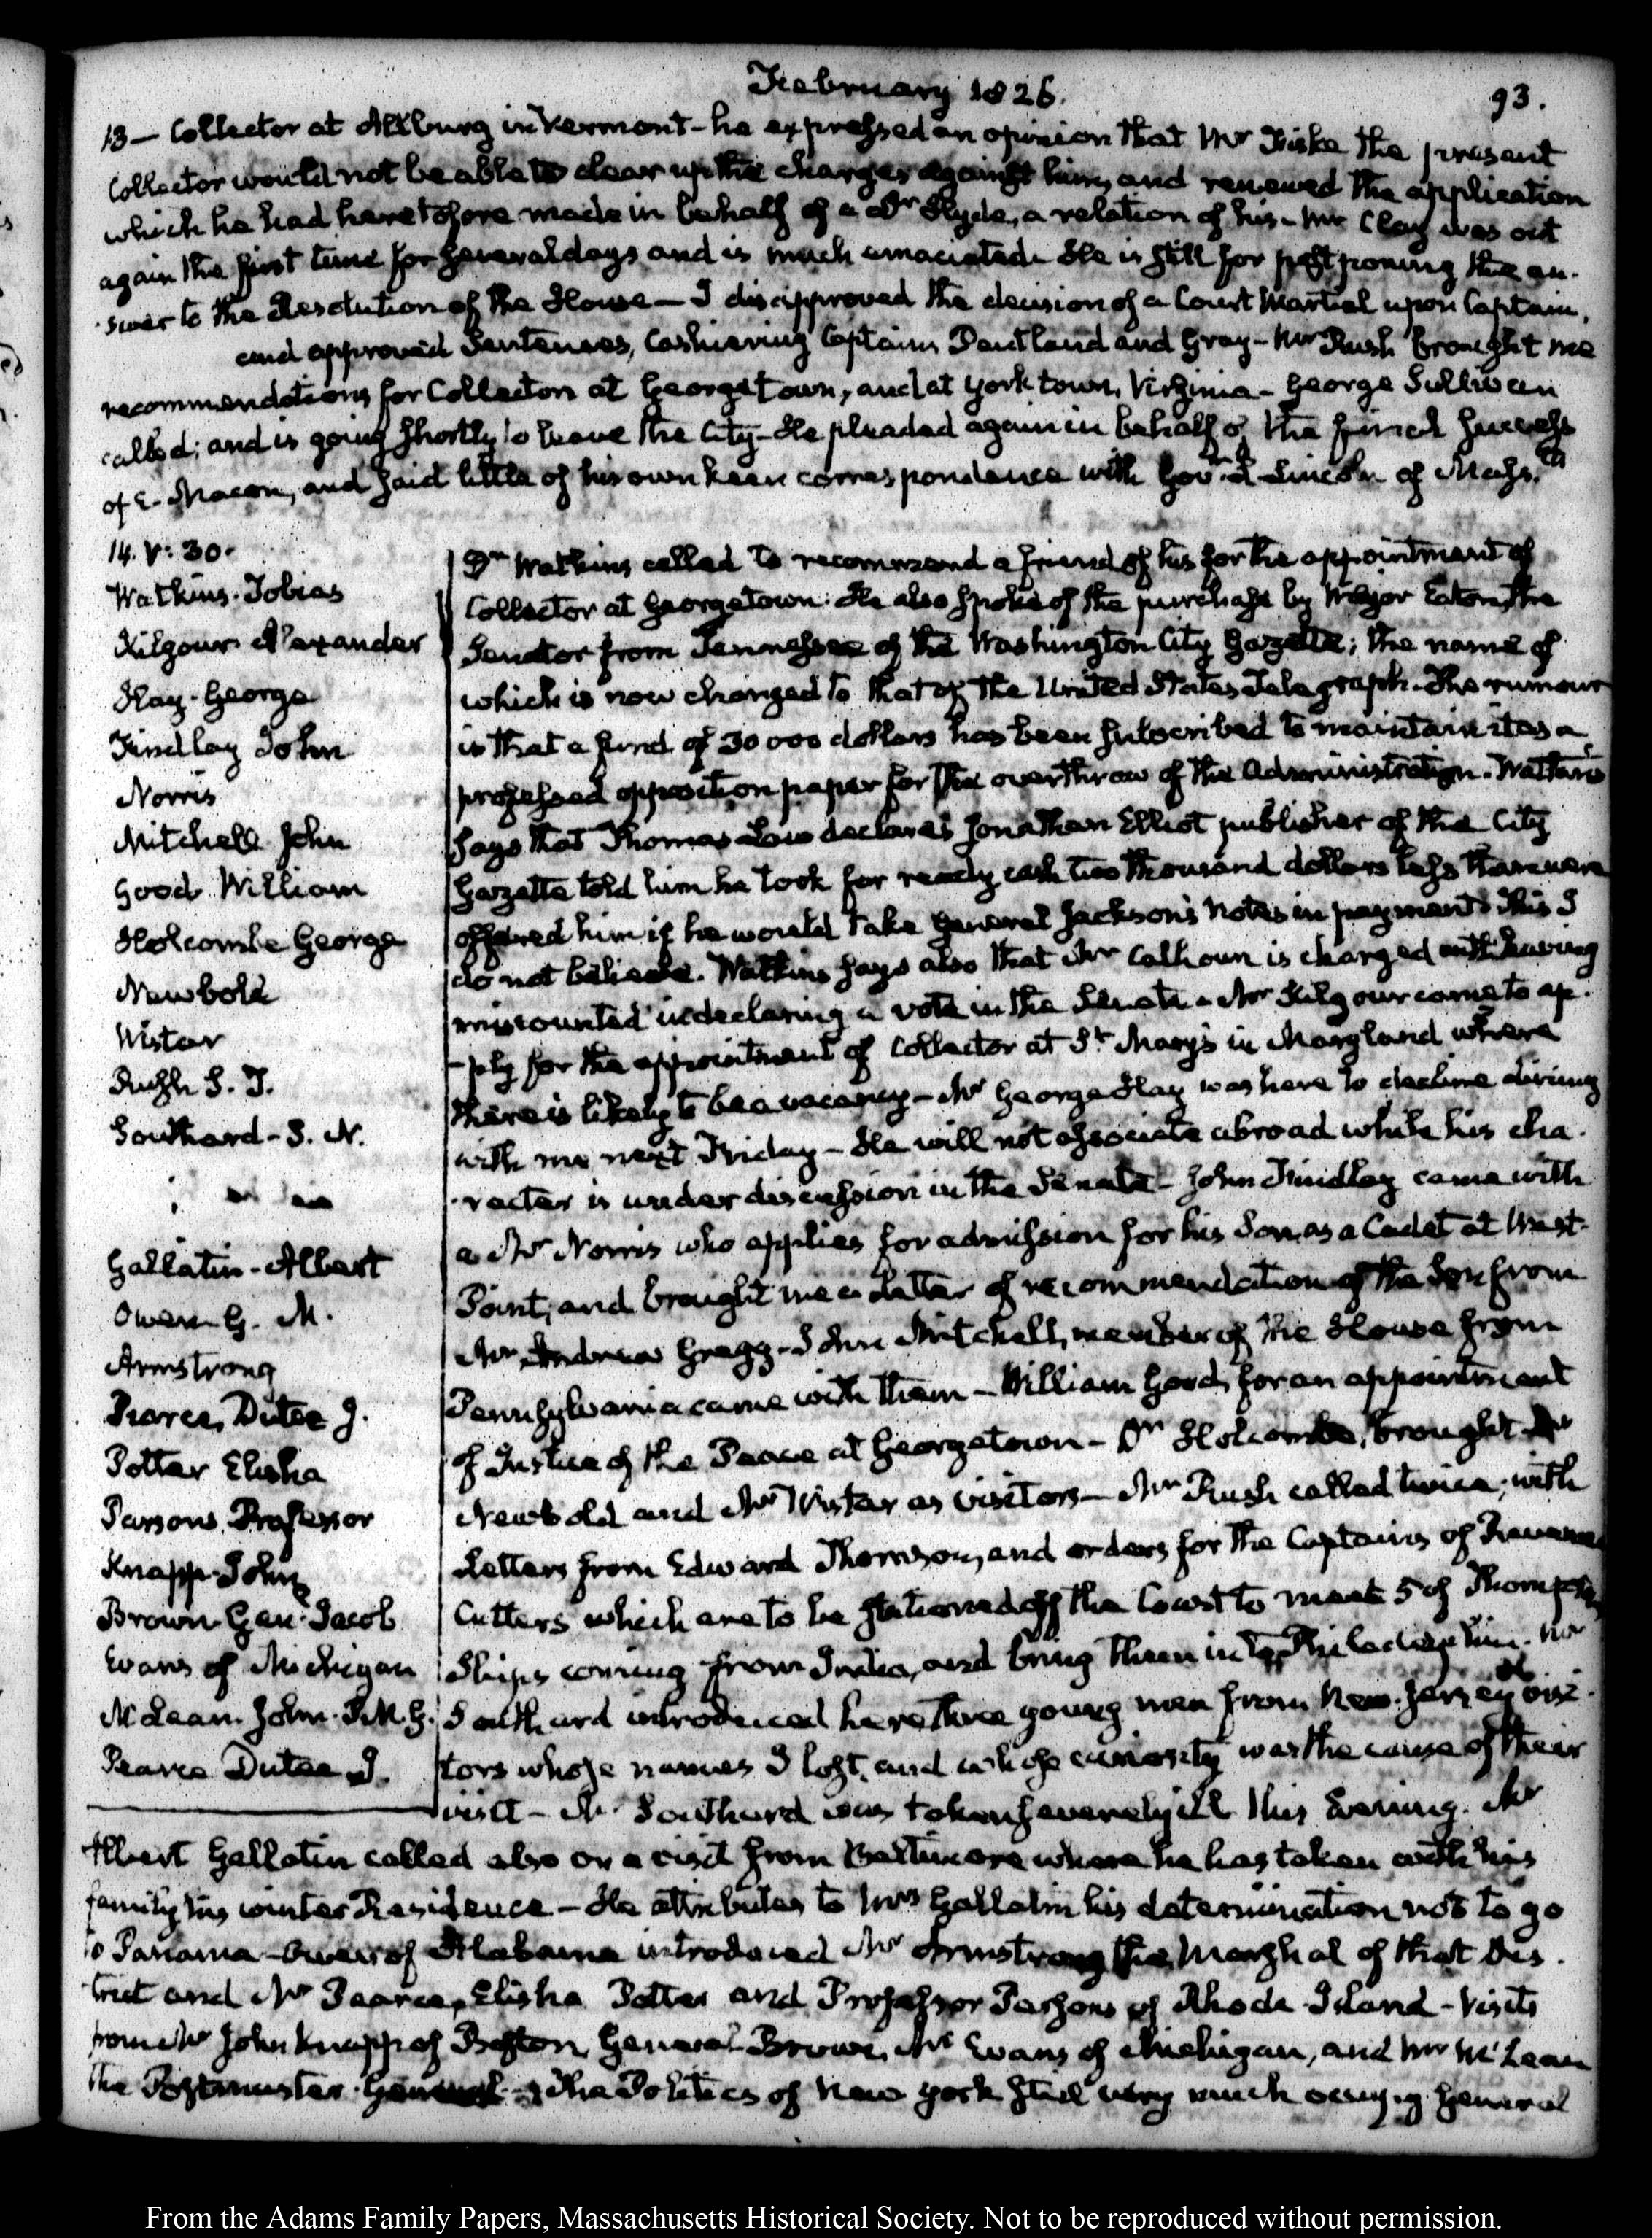 February 1826.
93.
13 — Collector at Allburg in Vermont - he expressed an opinion that Mr Fiske the present
Collector would not be able to clear up the charges against him, and renewed the application
which he had heretofore made in behalf of a Dr Hyde, a relation of his - Mr Clay was out
again the first time for several days and is much emaciated. He is still for postponing the an-
swer to the Resolution of the House — I disapproved the decision of a Court Martial upon Captain,
and approved Sentences, Cashiering Captains Pentland and Gray - Mr Rush brought me
recommendations for Collectors at Georgetown, and at York town, Virginia - George Sullivan
called; and is going shortly to leave the City - He pleaded again in behalf of the
of E. Macon, and said little of his own keen correspondence with Govr L. Lincoln of Massts
14. V: 30.
Watkins. Tobias
Kilgour Alexander
Hay. George
Findlay John
Norris
Mitchell John
Good William
Holcombe George
Newbold
Wistar
Rush
Southard - S. L.
Gallatin - Albert
Owen G. M.
Armstrong
Pearce, Dutee J.
Potter Elisha
Parsons Professor
Knapp John
Brown Gen. Jacob
Evans of Michigan
McLean. John. P.M.G.
Pearce Dutee J.
Dr Watkins called to recommend a friend of his for the appointment of
Collector at Georgetown. He also spoke of the purchase by Major Eaton, the
Senator from Tennessee of the Washington City Gazette; the name of
which is now changed to that of the United States Telegraph. The rumour
is that a fund of 30 000 dollars has been subscribed to maintain it as a
professed opposition paper for the overthrow of the Administration. Watkins
says that Thomas Law declares Jonathan Elliot publisher of the City
Gazette told him he took for ready cash two thousand dollars less than were
offered him if he would take General Jackson's Notes in payment. This I
do not believe. Watkins says also that Mr Calhoun is charged with having
miscounted in declaring a vote in the Senate - Mr Kilgour came to ap-
-ply for the appointment of Collector at St. Mary's in Maryland where
there is likely to be a vacancy - Mr George Hay was here to decline dining
with me next Friday - He will not associate abroad while his cha-
racter is under discussion in the Senate - John Findlay came with
a Mr Norris who applies for admission for his Son, as a Cadet at West-
Point, and brought me a letter of recommendation of the Son from
Mr Andrew Gregg - John Mitchell, member of the House from
Pennsylvania came with them - William Good, for an appointment
of Justice of the Peace at Georgetown - Dr Holcombe, brought Mr
Newbold and Mr Wistar as visitors — Mr Rush called twice; with
Letters from Edward Thomson, and orders for the Captains of Revenue
Cutters which are to be stationed off the Coast to meet 5 of Thompson's
Ships coming from India, and bring them into Philadelphia. Mr
Southard introduced here three young men from New-Jersey visi-
tors whose names I lost, and whose curiosity was the cause of their
visit - Mr Southard was taken severely ill this Evening. Mr
Albert Gallatin called also on a visit from Baltimore where he has taken with his
family his winter Residence — He attributes to Mrs Gallatin his determination not to go
to Panama - Owen of Alabama introduced Mr Armstrong the Marshal of that Dis-
trict and Mr Pearce, Elisha Potter and Professor Parsons of Rhode-Island - Visits
from Mr John Knapp of Boston, General Brown, Mr Evans of Michigan, and Mr McLean
the Postmaster General - The Politics of New York still very much occupy General
From the Adams Family Papers, Massachusetts Historical Society. Not to be reproduced without permission.